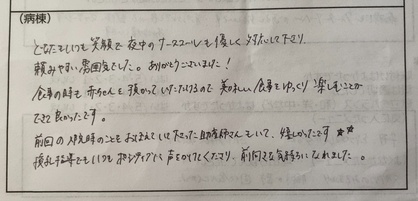 (病棟)
どなたもいつも笑顔で夜中のナースコールも優しく対応して下さり、
頼みやすい雰囲気でした。ありがとうございました！
食事の時も赤ちゃんを預かっていただけるので美味しい食事をゆっくり楽しむことが
できて良かったです。
前回の入院時のことをおぼえていて下さった助産師さんもいて、嬉しかったです
授乳指導でもいつもポジティブに声をかけてくださり、前向きな気持ちになれました。